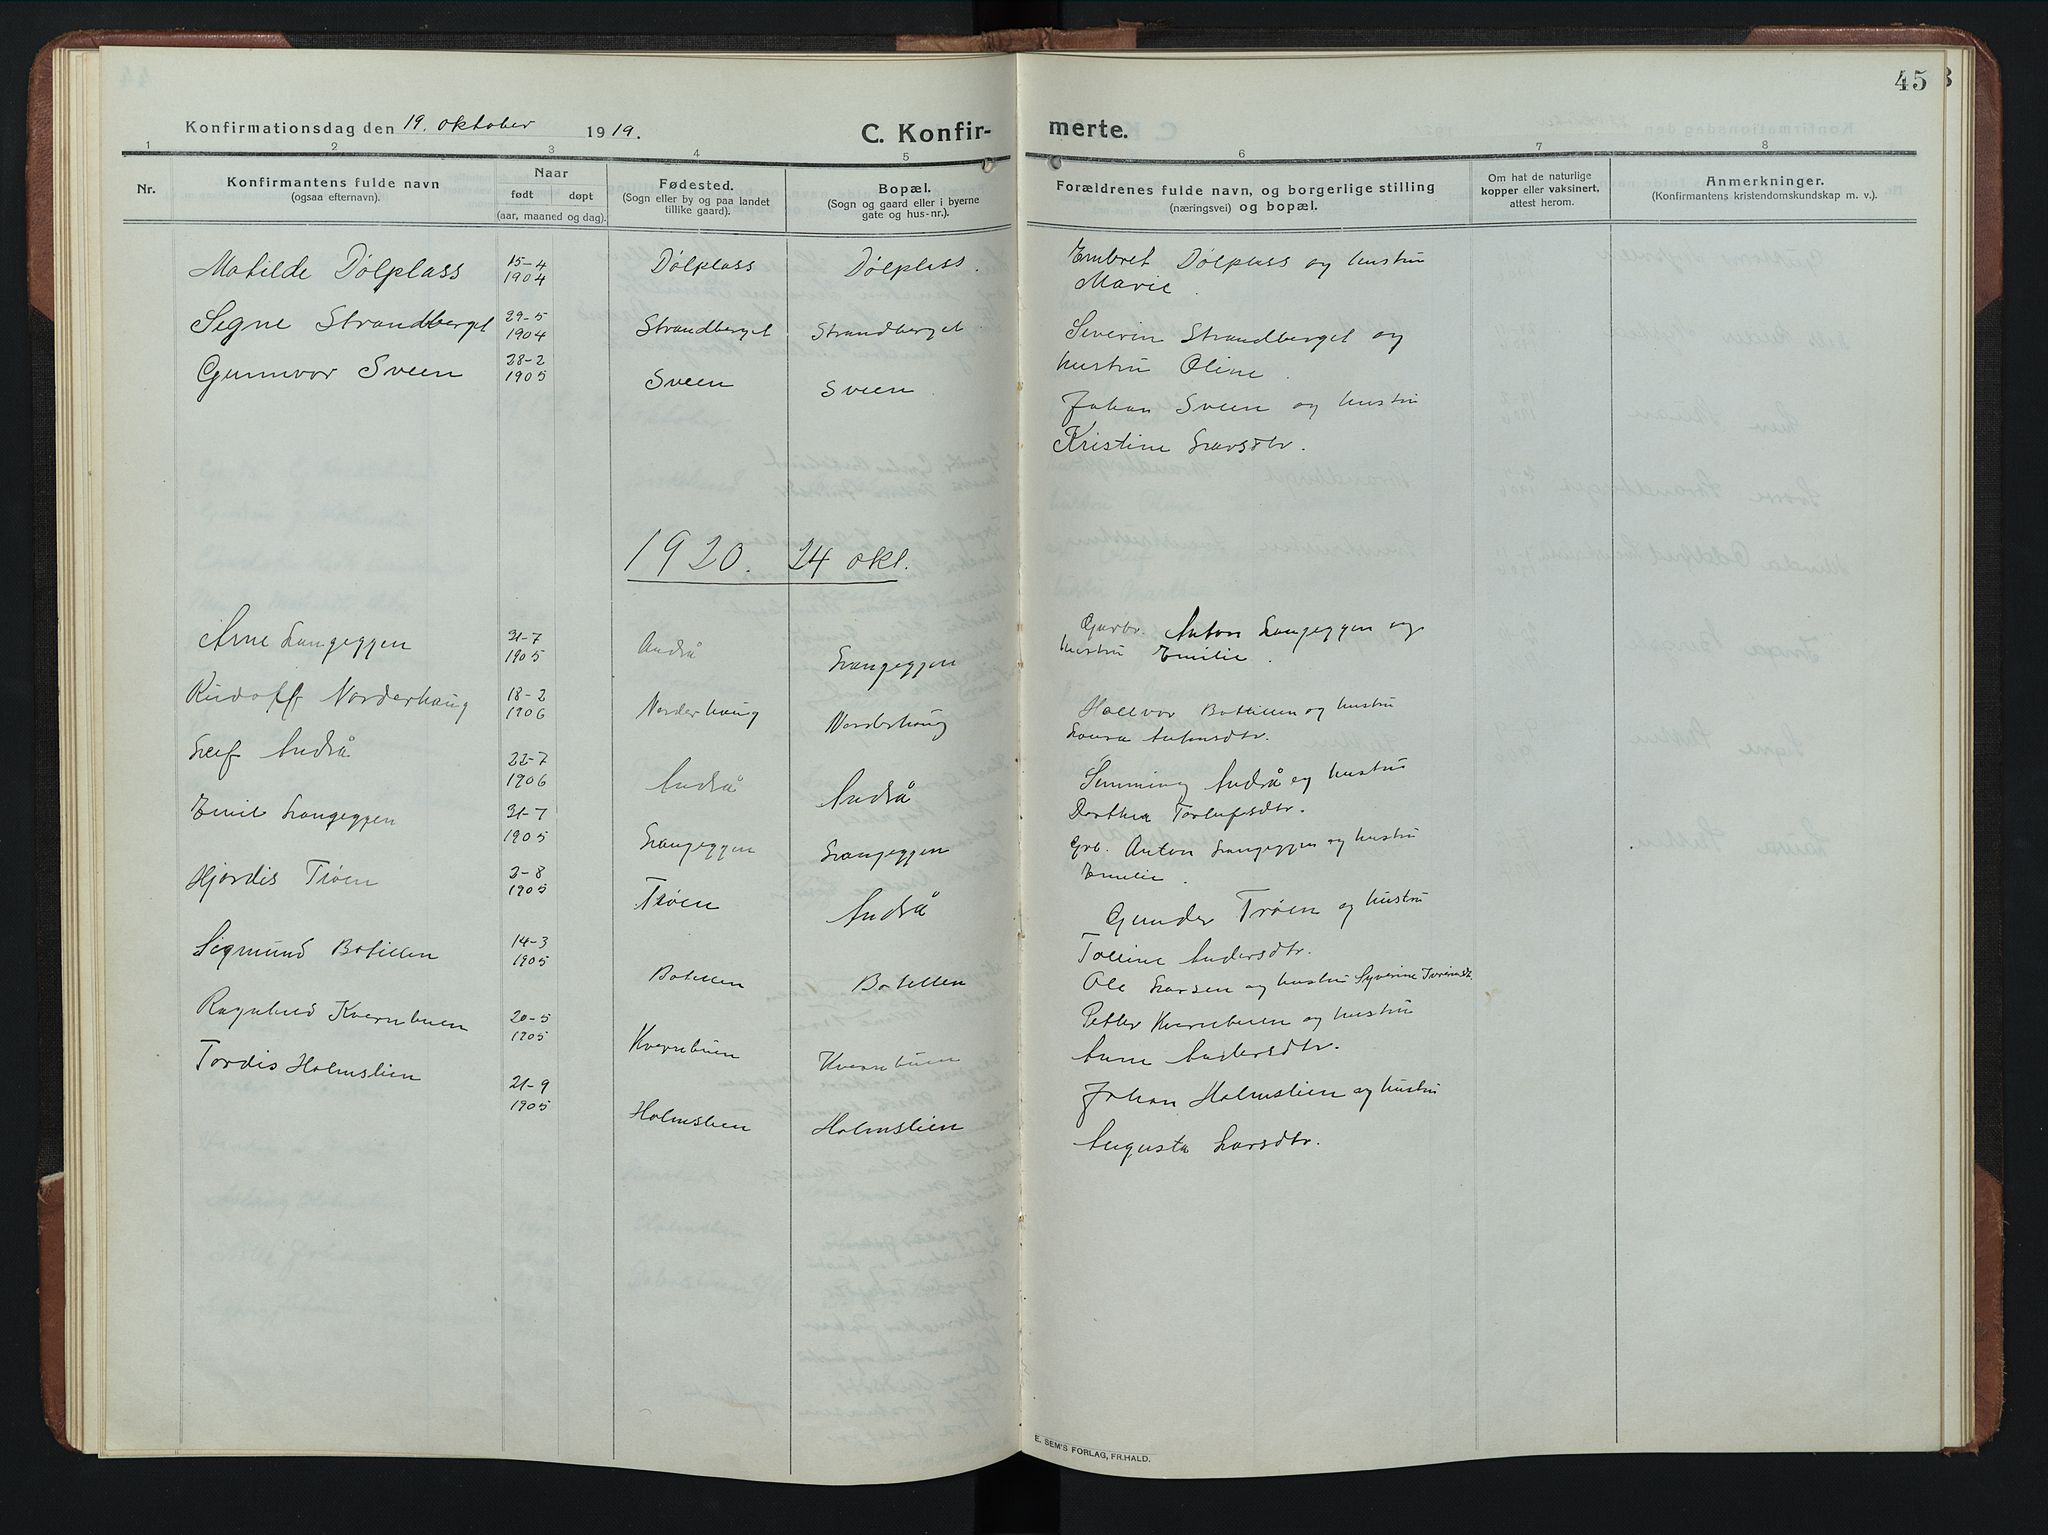 45
Konfirmationsdag den 19. oktober 1919.
C. Konfir- merte.
1 2 3 4 5 6 7 8
Nr.
Konfirmantens fulde navn
(ogsaa efternavn).
Naar
født døpt
(aar, maaned og dag).
Fødested.
(Sogn eller by og paa landet
tillike gaard).
Bopæl.
(Sogn og gaard eller i byerne
gate og hus-nr.).
Forældrenes fulde navn, og borgerlige stilling
(næringsvei) og bopæl.
Om hat de naturlige
kopper eller vaksinert,
attest herom.
Anmerkninger.
(Konfirmantens kristendomskundskap m. v.).
Matilde Dølplass 15-4 1904 Dølplass Dølplass. Embret Dølplass og hustru
Marie.
Segne Strandberget 29-5 1904 Strandberget Strandberget. Severin Strandberget og
hustru Oline.
Gunnvor Sveen 28-2 1905 Sveen Sveen. Johan Sveen og hustru
Kristine Larsdtr.
1920. 24 okt.
Arne Langeggen 31-7 1905 Andrå Langeggen Garbr. Anton Langeggen og
hustru Emilie.
Rudolf Norderhaug 18-2 1906 Norderhaug Norderhaug Hallvor Botillen og hustru
Laura Antonsdtr.
Leif Andrå 22-7 1906 Andrå Andrå Simming Andrå og hustru
Dorthea Torleifsdtr.
Emil Langeggen 31-7 1905 Langeggen Langeggen Grb. Anton Langeggen og hustru
Emilie.
Hjørdis Trøen 3-8 1905 Trøen Andrå Gunder Trøen og hustru
Tolline Andersdtr.
Sigmund Botillen 14-3 1905 Botillen Botillen Ole Larsen og hustru Syverine
Ragnhild Kvernbuen 20-5 1905 Kvernbuen Kvernbuen Petter Kvernbuen og hustru
Anne Andersdtr.
Tordis Holmslien 21-9 1905 Holmslien Holmslien Johan Holmslien og hustru
Augusta Larsdtr.
E. SEM'S FORLAG, FR.HALD.